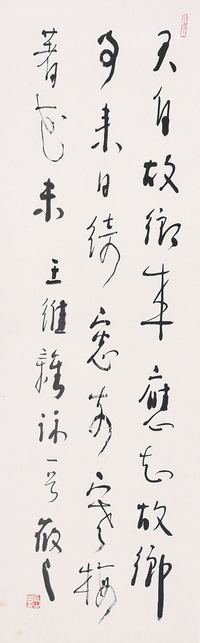 君自故鄉来應知故鄉
事来日綺窓前寒梅
著花未 王維雜詠一首 散之